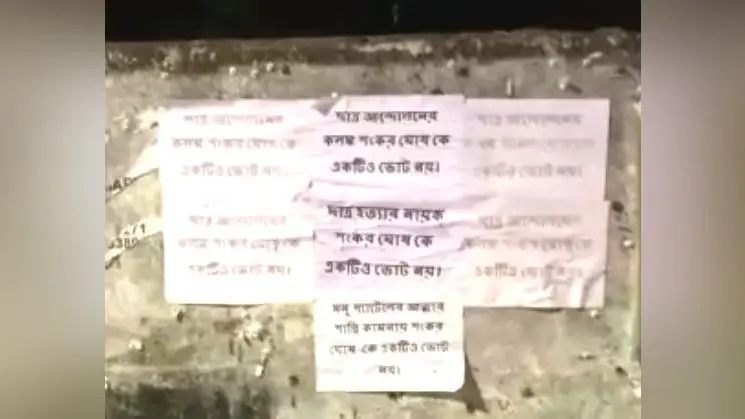 ছাত্র আন্দোলনের
কলঙ্ক শংকর ঘোষ কে
একটিও ভোট নয়।
ছাত্র আন্দোলনের
কলঙ্ক শংকর ঘোষ কে
একটিও ভোট নয়।
ছাত্র আন্দোলনের
একটিও ভোট নয়।
ছাত্র আন্দোলনের
কলঙ্ক শংকর ঘোষ কে
একটিও ভোট নয়।
ছাত্র হত্যার নায়ক
শংকর ঘোষ কে
একটিও ভোট নয়।
ছাত্র আন্দোলনের
কলঙ্ক শংকর ঘোষ কে
একটিও ভোট নয়।
আত্মার
শান্তি কামনায় শংকর
ঘোষ কে একটিও ভোট
নয়।